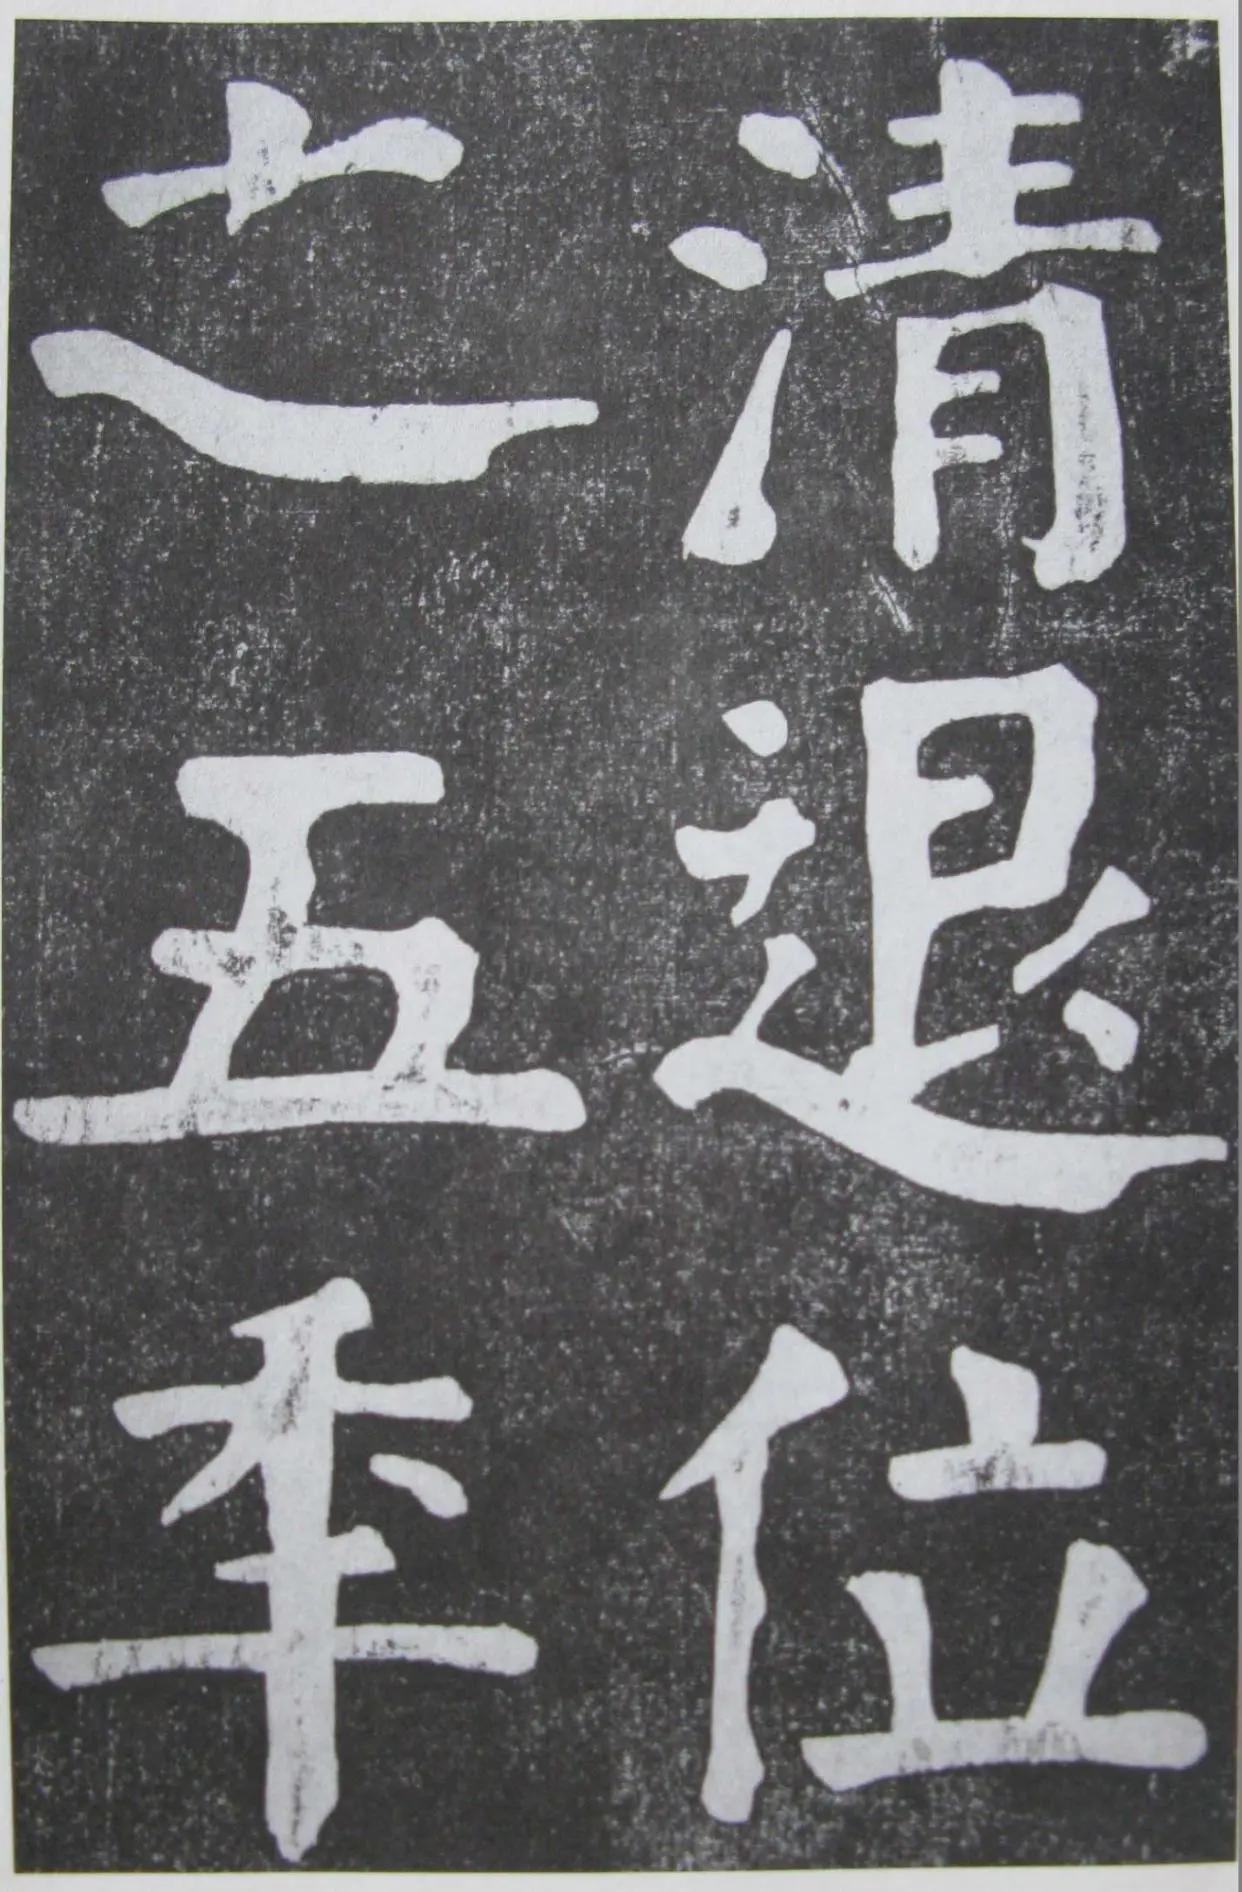 清退位
之五秊